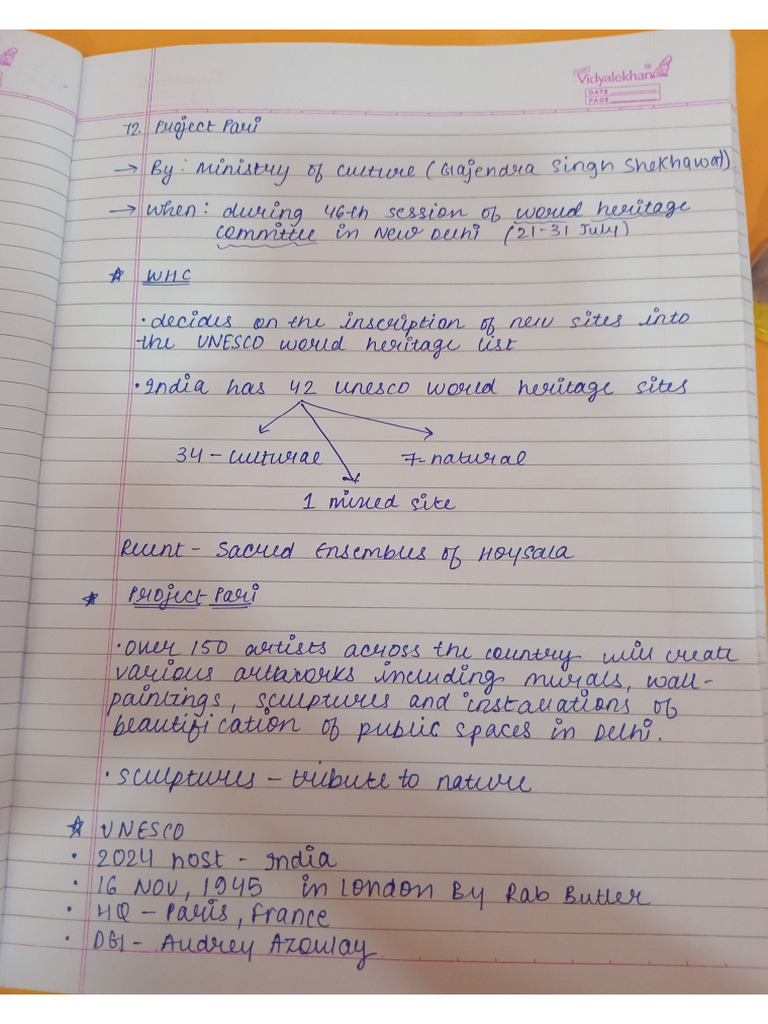 Vidyalekhan
DATE
PAGE
72. Project Pari
→ By: Ministry of Culture (Gajendra Singh Shekhawat)
→ When: during 46th session of world heritage
committee in New Delhi (21-31 July)
☆ WHC
• decides on the inscription of new sites into
the UNESCO world heritage list
• India has 42 unesco world heritage sites
34 - cultural 7 - natural
1 mixed site
Recent - Sacred Ensembles of Hoysala
☆ Project Pari
• Over 150 artists across the country will create
various artworks including murals, wall-
paintings, sculptures and installations of
beautification of public spaces in Delhi.
• Sculptures - tribute to nature
☆ UNESCO
• 2024 host - India
• 16 NOV, 1945 in London By Rab Butler
• HQ - Paris, France
• DG - Audrey Azoulay